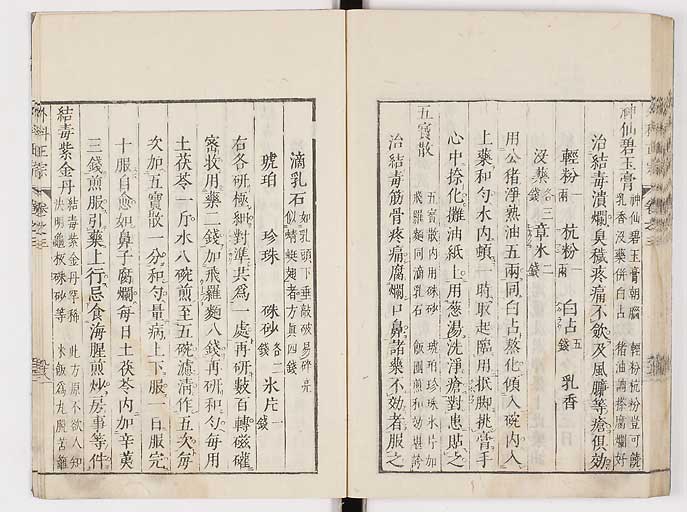 神仙碧玉膏 神仙碧玉膏朝腦 輕粉杭粉豈可饒
乳香沒藥併白占 猪油調搽腐爛好
治結毒潰爛臭穢疼痛不歛及風臁等瘡但効
輕粉一兩 杭粉一兩 白占五錢 乳香
沒藥各三錢 章氷二錢
用公猪淨熟油五兩同白占熬化傾入碗内入
上藥和勻水内頓一時取起臨用抿脚挑膏手
心中捺化攤油紙上用葱湯洗淨瘡對患貼之
五寶散 五寶散内用硃砂 琥珀珍珠氷片加
飛羅麵同滴乳石 飯團煎和効堪誇
治結毒筋骨疼痛腐爛口鼻諸藥不効者服之
滴乳石 如乳頭下垂敲破易碎亮
似蜻蜓翅者方真四錢
琥珀 珍珠 硃砂各二錢 氷片一錢
右各研極細對準共為一處再研數百轉磁罐
密收用藥二錢加飛羅麵八錢再研和勻每用
土茯苓一斤水八碗煎至五碗濾清作五次每
次加五寶散一分和勻量病上下服一日服完
十服自愈如鼻子腐爛每日土茯苓内加辛荑
三錢煎服引藥上行忌食海腥煎炒房事等件
結毒紫金丹 結毒紫金丹稀 此方原不欲人知
法明龜板硃砂等 米飯為丸脫苦離
外科正宗 卷之三